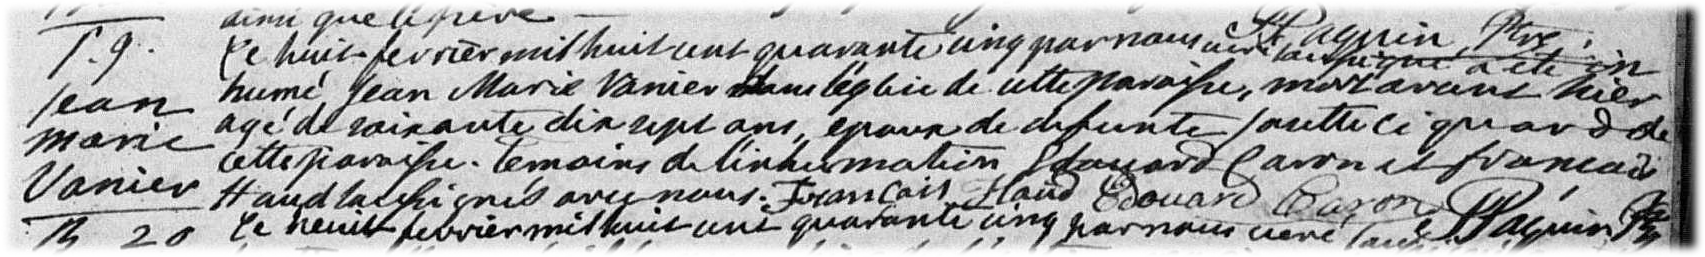 ainsi que le père JJPaquin Ptre.
S. 9. Le huit fevrier mil huit cent quarante cinq par nous curé soussigné a été in
Jean humé Jean Marie Vanier dans l'église de cette paroisse, mort avant hier
marie agé de soixante dix sept ans, epoux de defunte Josette Ciquard de
cette paroisse. Temoins de l'inhumation Edouard Caron et francois
Vanier Haud soussignés avec nous. François Haud Edouard Caron JJPaquin Ptre
B. 20 Le huit fevrier mil huit cent quarante cinq par nous curé